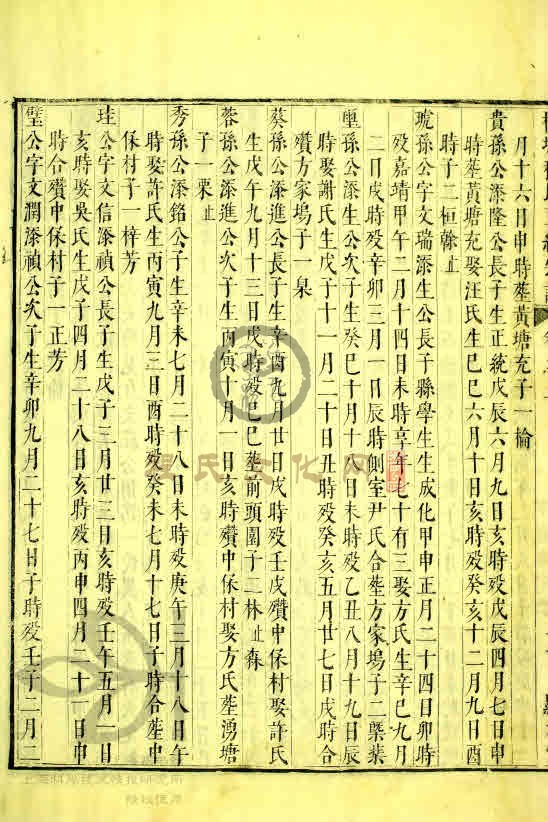 月十六日申時塟黃塘充子一掄
貴孫公添隆公長子生正統戊辰六月九日亥時歿戊辰四月七日申
時塟黃塘充娶汪氏生己巳六月十日亥時歿癸亥十二月九日酉
時子二桓榦止
琥孫公字文瑞添生公長子縣學生生成化甲申正月二十四日卯時
歿嘉靖甲午二月十四日未時享年七十有三娶方氏生辛巳九月
二日戌時歿辛卯三月一日辰時側室尹氏合塟方家塢子二㮣葉
璽孫公添生公次子生癸巳十月十八日未時歿乙丑八月十九日辰
時娶謝氏生戊子十一月二十日丑時歿癸亥五月廿七日戌時合
殯方家塢子一臬
葵孫公添進公長子生辛酉九月廿日戌時歿壬戌殯中保村娶許氏
生戊午九月十三日戌時歿己巳塟前頭園子二林止森
蓉孫公添進公次子生丙寅十月一日亥時殯中保村娶方氏塟湧塘
子一栗止
秀孫公添銘公子生辛未七月二十八日未時歿庚午三月十八日午
時娶許氏生丙寅九月三日酉時歿癸未七月十七日子時合塟中
保村子一梓芳
珪公字文信添禎公長子生戊子三月廿三日亥時歿壬午五月一日
亥時娶吳氏生戊子四月二十八日亥時歿丙申四月二十一日申
時合殯中保村子一正芳
璧公字文潤添禎公次子生辛卯九月二十七日子時歿壬子二月二